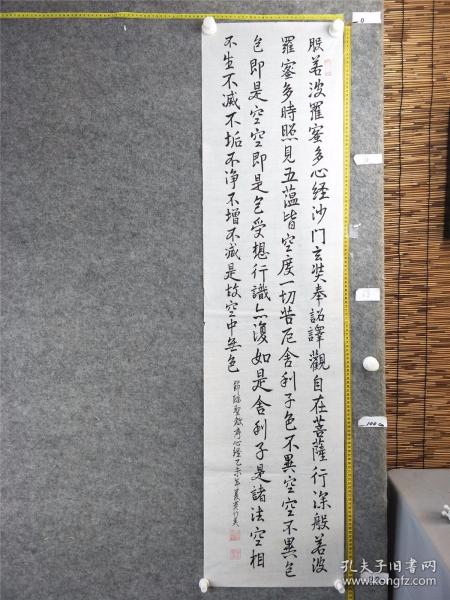 般若波羅蜜多心経沙门玄奘奉詔譯觀自在菩薩行深般若波
羅蜜多時照見五蘊皆空度一切苦厄舍利子色不異空空不異色
色即是空空即是色受想行識亦復如是舍利子是諸法空相
不生不滅不垢不净不增不减是故空中無色
節臨聖教序心經乙未年夏
0
100
孔夫子旧书网
kongfz.com